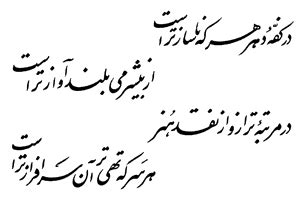 در کفّهٔ دهر هر که ناساز تر است
از بیشرمی بلند آواز تر است
در مرتبهٔ ترازو از نقد هنر
هر سر که تهی تر آن سرافراز تر است